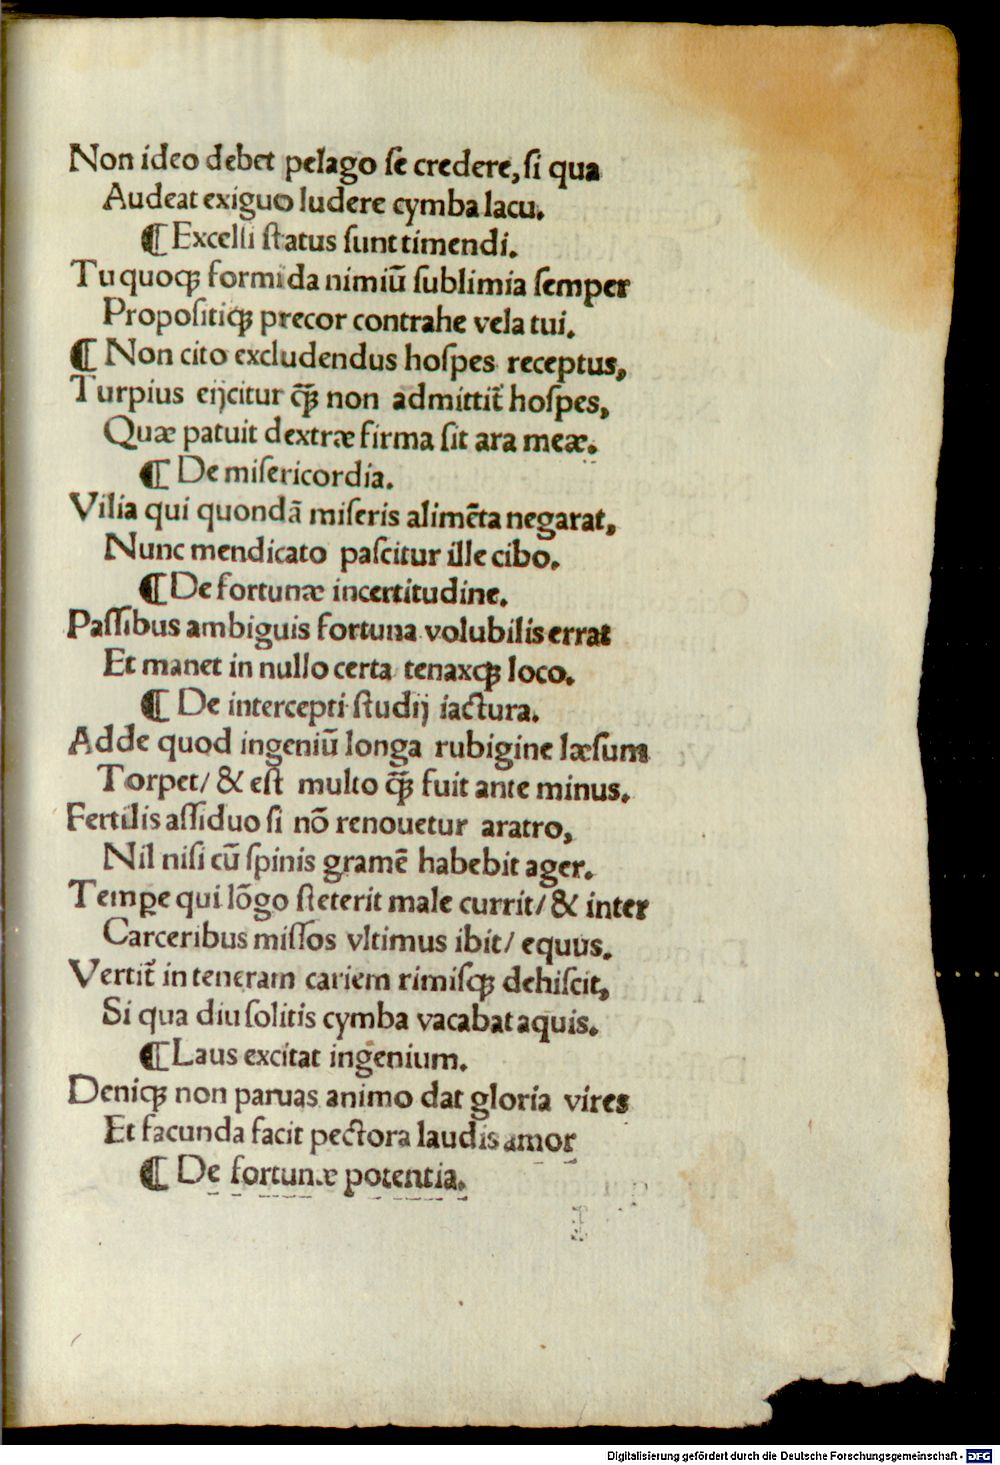 Non ideo debet pelago ſe credere, ſi qua
Audeat exiguo ludere cymba lacu.
¶ Excelſi ſtatus ſunt timendi.
Tu quoqꝫ formida nimiū ſublimia ſemper
Propoſitiqꝫ precor contrahe vela tui.
¶ Non cito excludendus hoſpes receptus,
Turpius eijcitur q̄ꝫ non admittit᷑ hoſpes,
Quæ patuit dextræ firma ſit ara meæ.
¶ De miſericordia.
Vilia qui quondā miſeris alimēta negarat,
Nunc mendicato paſcitur ille cibo.
¶ De fortunæ incertitudine.
Paſſibus ambiguis fortuna volubilis errat
Et manet in nullo certa tenaxqꝫ loco.
¶ De intercepti ſtudij iactura.
Adde quod ingeniū longa rubigine læſum
Torpet/ & eſt multo q̄ꝫ fuit ante minus.
Fertilis aſſiduo ſi nō renouetur aratro,
Nil niſi cū ſpinis gramē habebit ager.
Temꝑe qui lōgo ſteterit male currit/ & inter
Carceribus miſſos vltimus ibit/ equus.
Vertit᷑ in teneram cariem rimiſqꝫ dehiſcit,
Si qua diu ſolitis cymba vacabat aquis.
¶ Laus excitat ingenium.
Deniqꝫ non paruas animo dat gloria vires
Et facunda facit pectora laudis amor
¶ De fortunæ potentia.
Digitalisierung gefördert durch die Deutsche Forschungsgemeinschaft - DFG